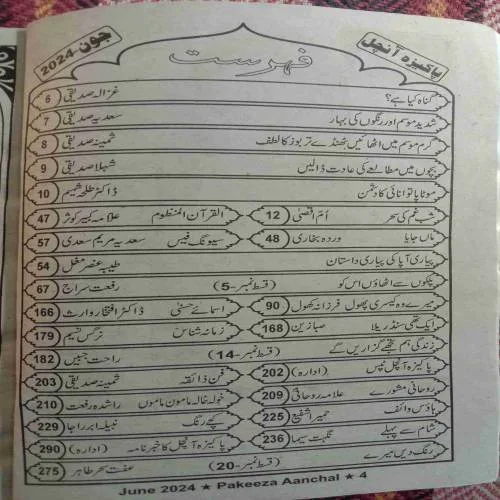 پاکیزہ آنچل
فہرست
جون-2024
گناہ کیا ہے؟ غزالہ صدیقی 6
شدید موسم اور رنگوں کی بہار سعدیہ صدیقی 7
گرم موسم میں اٹھائیں ٹھنڈے تربوز کا لطف ثمینہ صدیقی 8
بچوں میں مطالعے کی عادت ڈالیں شہلا صدیقی 9
موٹاپا توانائی کا دشمن ڈاکٹر طلحہ شمیم 10
شبِ غم کی سحر اُم اقصیٰ 12 القرآن المنظوم علامہ کبیر کوثر 47
ماں جایا وردہ بخاری 48 سیونگ فیس سعدیہ مریم سعدی 57
پیاری آپا کی پیاری داستان طیبہ عنصر مغل 54
پلکوں سے اٹھاؤں اس کو (قسط نمبر-5) رفعت سراج 67
میرے وہ کیسری پھول فرزانہ کھول 90 اسمائے حسنیٰ ڈاکٹر افتخار وارث 166
ایک تھی سنڈریلا صبا زین 168 زمانہ شناس نرگس نسیم 179
زندگی ہم تجھے گزاریں گے (قسط نمبر-14) راحت جبیں 182
پاکیزہ آنچل ٹپس (ادارہ) 202 فن ذائقہ ثمینہ صدیقی 203
روحانی مشورے علامہ روحانی 209 خولہ خالہ مامون ماموں راشدہ رفعت 210
ہاؤس وائف حمیرا شفیع 225 کچے رنگ نبیلہ ابر راجا 229
شام سے پہلے نگہت سیما 236 پاکیزہ آنچل کا خبرنامہ (ادارہ) 290
رنگ دیں میرے (قسط نمبر-20) عفت سحر طاہر 275
June 2024 ★ Pakeeza Aanchal ★ 4